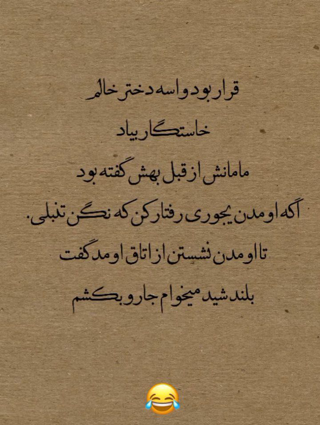 قرار بود واسه دختر خالم
خاستگار بیاد
مامانش از قبل بهش گفته بود
اگه اومدن یجوری رفتار کن که نگن تنبلی.
تا اومدن نشستن از اتاق اومد گفت
بلند شید میخوام جارو بکشم
😂